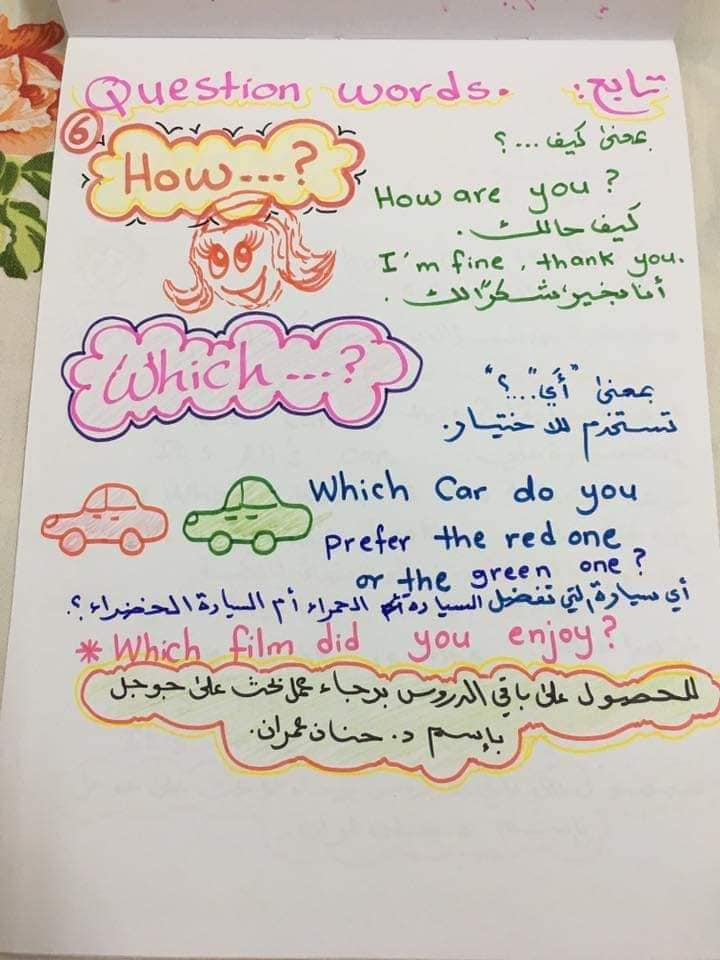 Question words. تابع:
6
How...?
بمعنى كيف ...؟
How are you?
كيف حالك.
I'm fine, thank you.
أنا بخير، شكرًا لك.
Which...?
بمعنى "أي"...؟
تستخدم للاختيار.
Which Car do you
prefer the red one
or the green one?
أي سيارة التي تفضل السيارة الحمراء أم السيارة الخضراء؟.
* Which film did you enjoy?
للحصول على باقي الدروس برجاء عمل بحث على جوجل
بإسم د. حنان عمران.